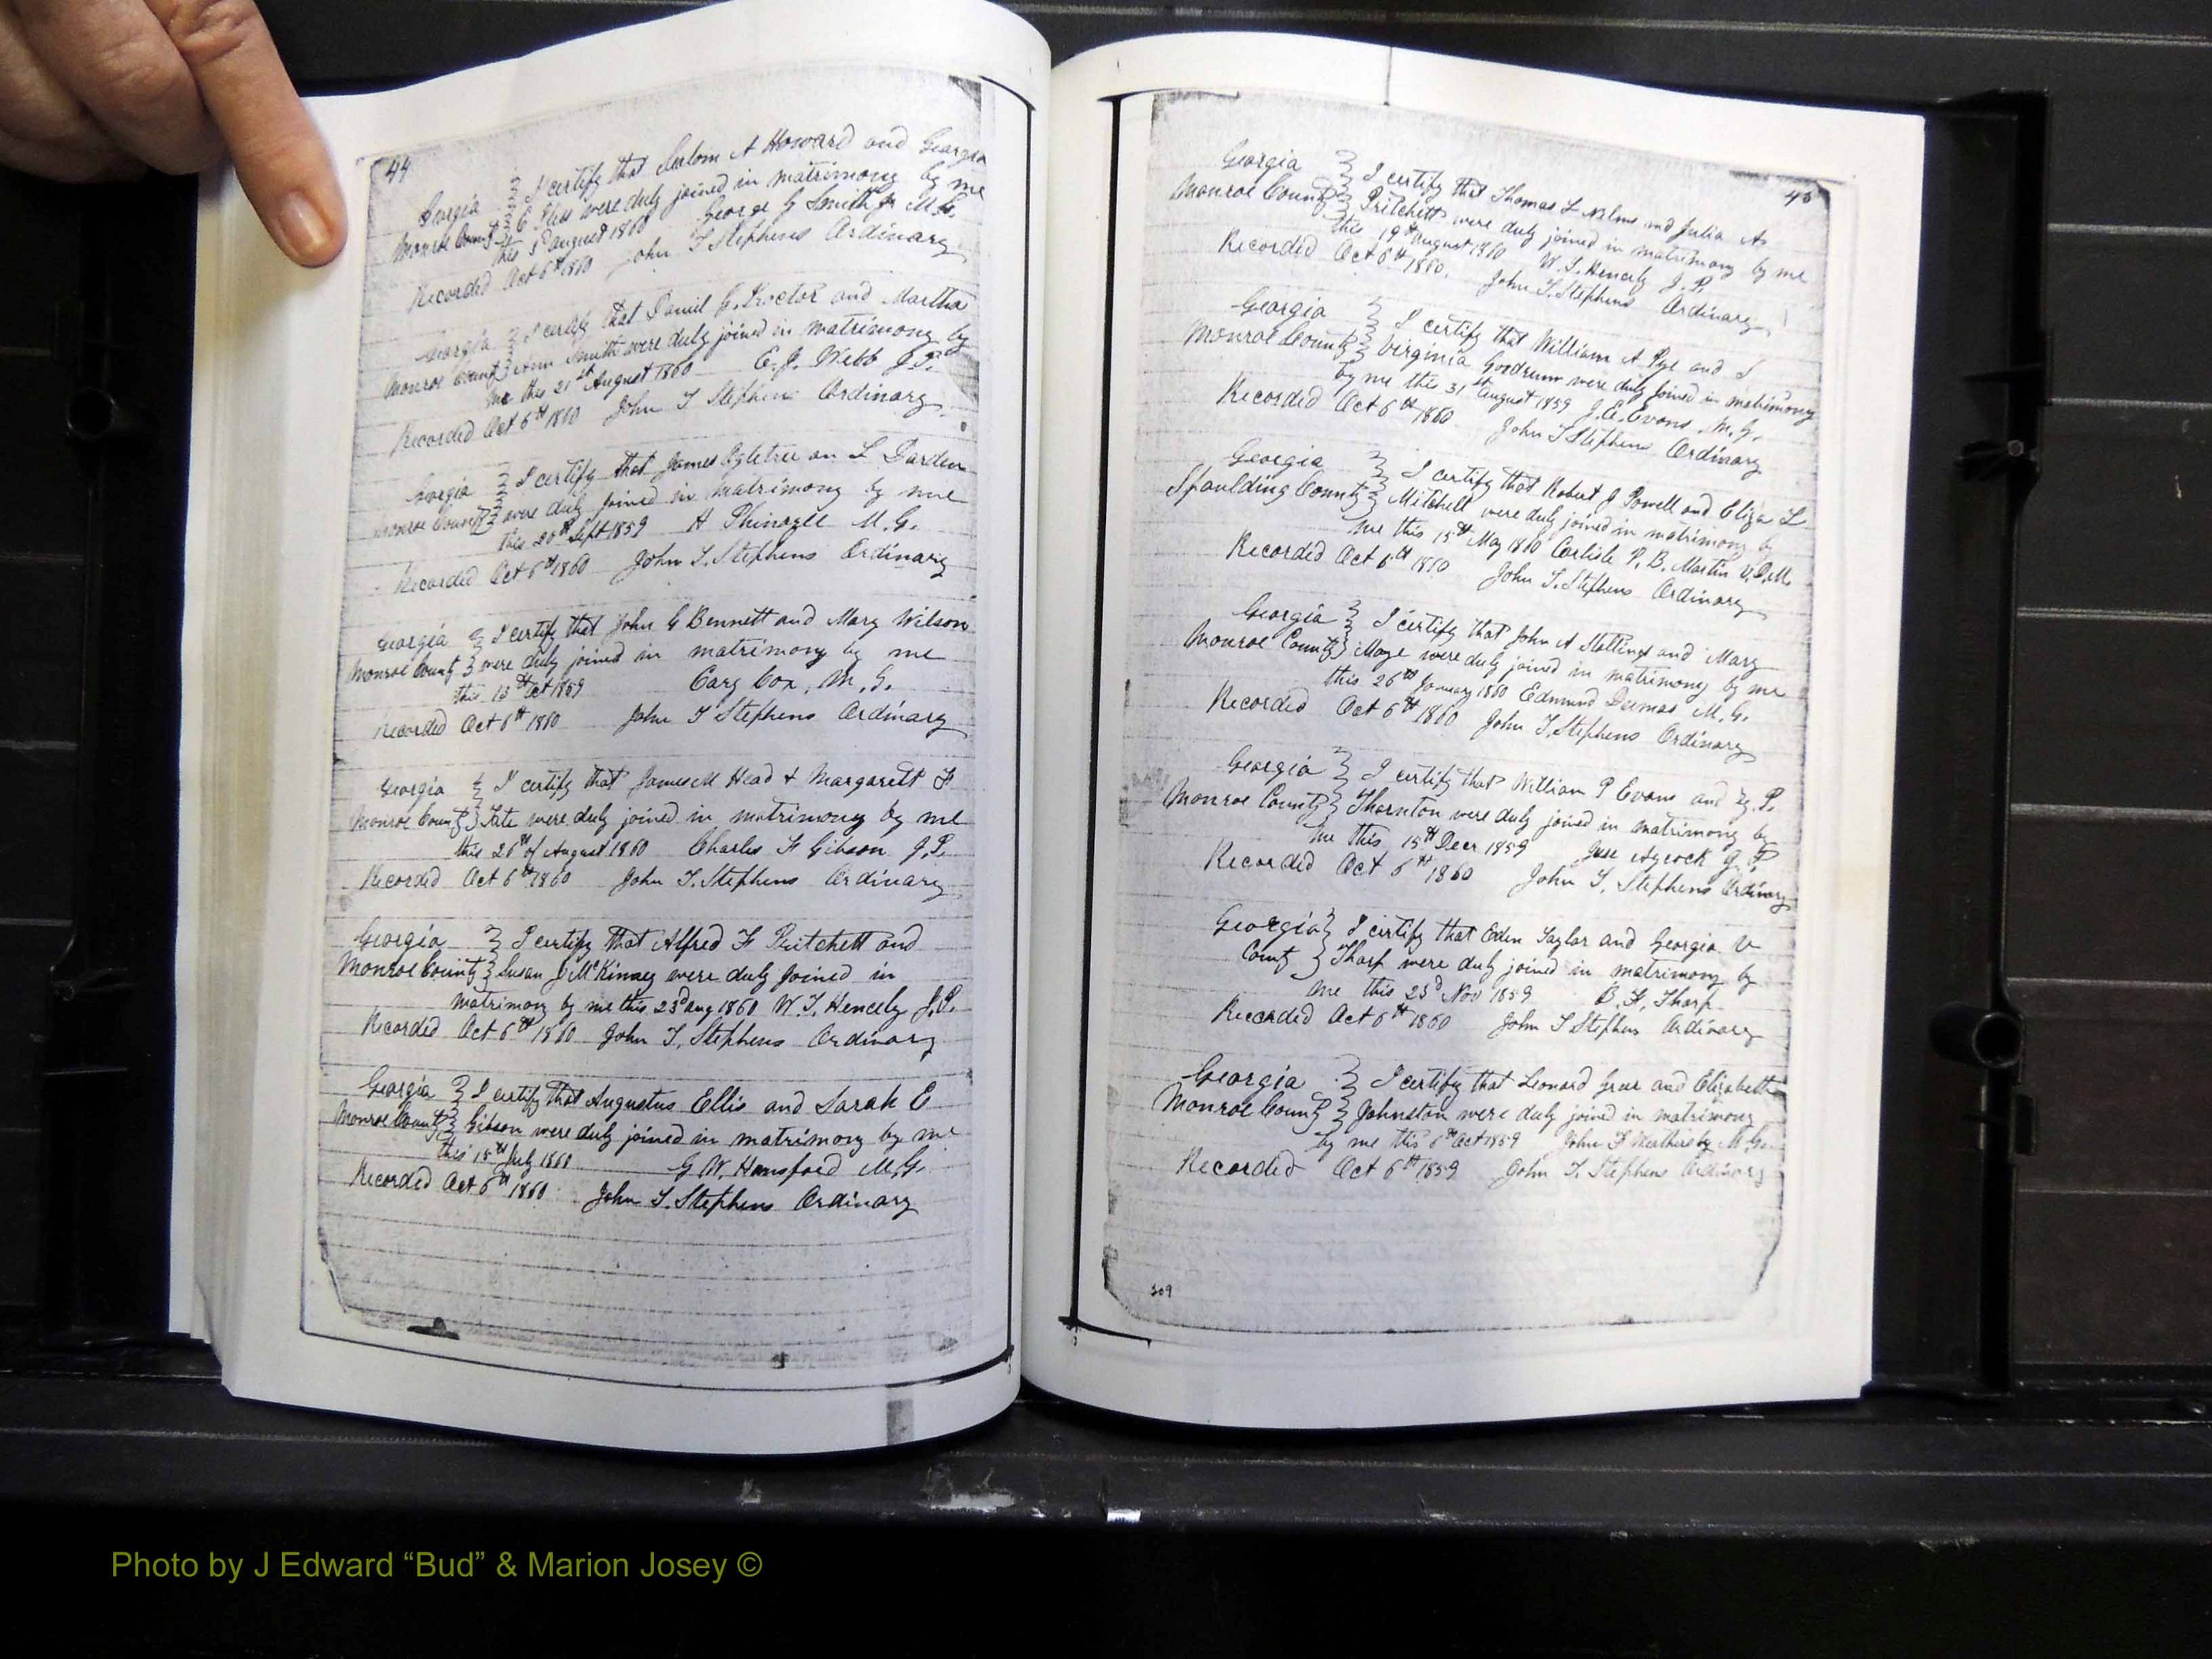 44
Georgia } I certify that A Howard and Georgia
Monroe County } C were duly joined in matrimony by me
this 5th august 1860 George G Smith Jr M.G.
Recorded Oct 6th 1860 John T Stephens Ordinary
Georgia } I certify that Daniel G. Proctor and Martha
Monroe County } Ann Smith were duly joined in matrimony by
me this 21st August 1860 E. J. Webb J.P.
Recorded Oct 6th 1860 John T Stephens Ordinary
Georgia } I certify that James Ogletree an L Darden
Monroe County } were duly joined in matrimony by me
this 20th Sept 1859 H Phinazee M.G.
Recorded Oct 6th 1860 John T. Stephens Ordinary
Georgia } I certify that John G Bennett and Mary Wilson
Monroe County } were duly joined in matrimony by me
this 13th Oct 1859 Cary Cox, M.G.
Recorded Oct 6th 1860 John T Stephens Ordinary
Georgia } I certify that James M Head & Margarett F
Monroe County } Tate were duly joined in matrimony by me
this 26th of August 1860 Charles F Gibson J.P.
Recorded Oct 6th 1860 John T. Stephens Ordinary
Georgia } I certify that Alfred F Pritchett and
Monroe County } Susan J McKinney were duly joined in
matrimony by me this 23d aug 1860 W. T. Hencely J.P.
Recorded Oct 6th 1860 John T. Stephens Ordinary
Georgia } I certify that Augustus Ellis and Sarah E
Monroe County } Gibson were duly joined in matrimony by me
this 15th July 1860 G W. Hansford M.G.
Recorded Oct 6th 1860 John T. Stephens Ordinary
45
Georgia } I certify that Thomas L Nelms and Julia A
Monroe County } Pritchett were duly joined in matrimony by me
this 19th August 1860 W. T. Hencely J.P.
Recorded Oct 6th 1860. John T. Stephens Ordinary
Georgia } I certify that William A Pye and S
Monroe County } Virginia Goodrum were duly joined in matrimony
by me this 31st August 1859 J. A. Evans M.G.
Recorded Oct 6th 1860 John T Stephens Ordinary
Georgia } I certify that Robert J Powell and Eliza L
Spaulding County } Mitchell were duly joined in matrimony by
me this 15th May 1860 Carlisle P. B. Martin V.D.M.
Recorded Oct 6th 1860 John T. Stephens Ordinary
Georgia } I certify that John A Stallings and Mary
Monroe County } Maye were duly joined in matrimony by me
this 26th January 1860 Edmund Dumas M.G.
Recorded Oct 6th 1860 John T. Stephens Ordinary
Georgia } I certify that William P Evans and P.
Monroe County } Thornton were duly joined in matrimony by
me this 15th Decr 1859 Jesse Aycock J.P
Recorded Oct 6th 1860 John T. Stephens Ordinary
Georgia } I certify that Eden Taylor and Georgia V
County } Tharp were duly joined in matrimony by
me this 23d Nov 1859 B. F. Tharp
Recorded Oct 6th 1860 John T Stephens Ordinary
Georgia } I certify that Leonard Greer and Elizabeth
Monroe County } Johnston were duly joined in matrimony
by me this 6th Oct 1859 John F M.G.
Recorded Oct 6th 1859 John T. Stephens Ordinary
209
Photo by J Edward “Bud” & Marion Josey ©